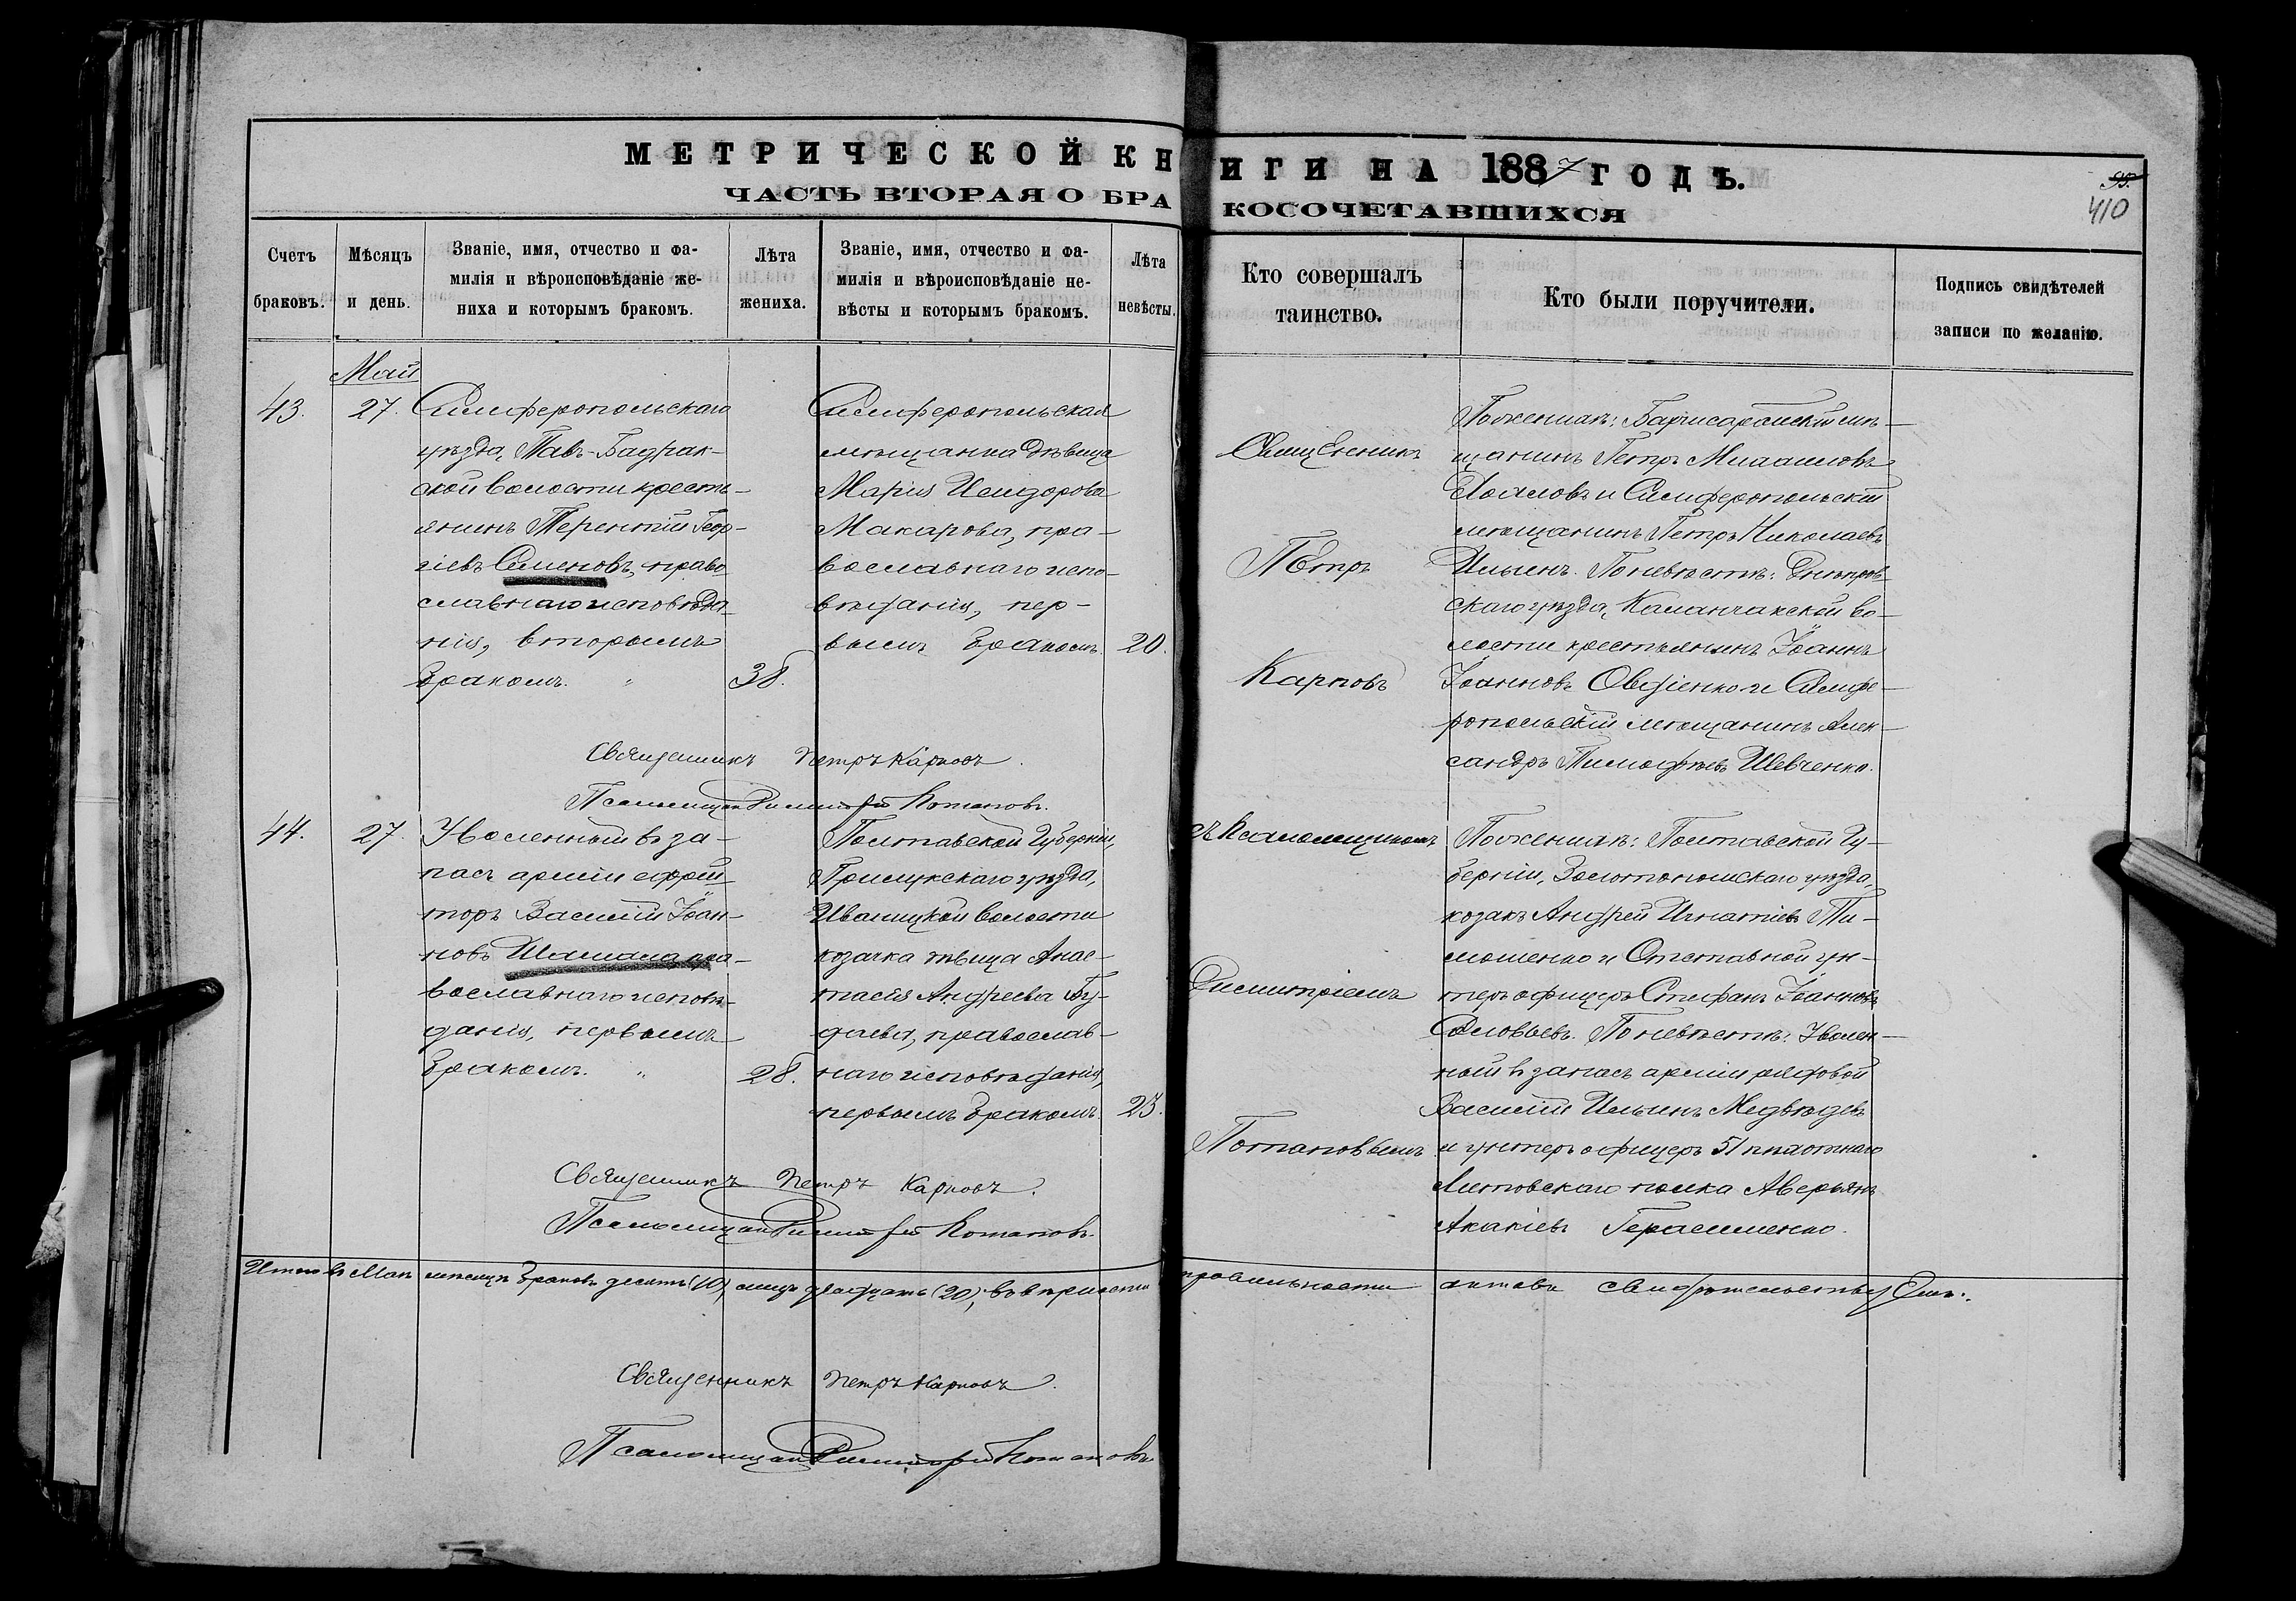 МЕТРИЧЕСКОЙ КНИГИ НА 1887 ГОДЪ.
ЧАСТЬ ВТОРАЯ О БРАКОСОЧЕТАВШИХСЯ
95.
410
Счетъ
браковъ.
Мѣсяцъ
и день.
Званіе, имя, отчество и фа-
милія и вѣроисповѣданіе же-
ниха и которымъ бракомъ.
Лѣта
жениха.
Званіе, имя, отчество и фа-
милія и вѣроисповѣданіе не-
вѣсты и которымъ бракомъ.
Лѣта
невѣсты.
Кто совершалъ
таинство.
Кто были поручители.
Подпись свидѣтелей
записи по желанію.
Май
43.
27.
Симферопольскаго
уѣзда, Тавъ-Бадрак-
ской волости кресть-
янинъ Терентій Геор-
гіевъ Семеновъ, право-
славнаго исповѣда-
нія, вторымъ
бракомъ. "
38.
Симферопольская
мѣщанка дѣвица
Марія Исидорова
Макарова, пра-
вославнаго испо-
вѣданія, пер-
вымъ бракомъ
20.
Священникъ
Петръ
Карповъ
По женихѣ: Бахчисарайскій мѣ-
щанинъ Петръ
и Симферопольскій
мѣщанинъ Петръ Николаевъ
Ильинъ. По невѣстѣ: Днѣпров-
скаго уѣзда, Каланчакской во-
лости крестьянинъ Іоаннъ
Іоанновъ Овдіенко и Симфе-
ропольскій мѣщанинъ Алек-
сандръ Тимофѣевъ Шевченко.
Священникъ Петръ Карповъ.
Псаломщикъ Димитрій Потаповъ.
44.
27.
Уволенный въ за-
пасъ арміи ефрей-
торъ Василій Іоан-
новъ пра-
вославнаго исповѣ-
данія, первымъ
бракомъ. "
28.
Полтавской Губерніи,
Прилукскаго уѣзда,
Иваницкой волости
козачка дѣвица Анас-
тасія Андреева Бу-
даева, православ-
наго исповѣданія,
первымъ бракомъ.
23.
съ Псаломщикомъ
Димитріемъ
Потаповымъ
По женихѣ: Полтавской Гу-
берніи, Золотоношскаго уѣзда,
козакъ Андрей Игнатіевъ Ти-
мошенко и Отставной ун-
теръ офицеръ Стефанъ Іоанновъ
Соловьевъ. По невѣстѣ: Уволен-
ный въ запасъ арміи рядовой
Василій Ильинъ Медвѣдевъ
и унтеръ офицеръ 51 пѣхотнаго
Литовскаго полка Аверьянъ
Акакіевъ Герасименко.
Священникъ Петръ Карповъ.
Псаломщикъ Димитрій Потаповъ.
Итого въ Маѣ мѣсяцѣ браковъ десять (10), лицъ двадцать (20), въ правильности актовъ свидѣтельствуемъ:
Священникъ Петръ Карповъ.
Псаломщикъ Димитрій Потаповъ.